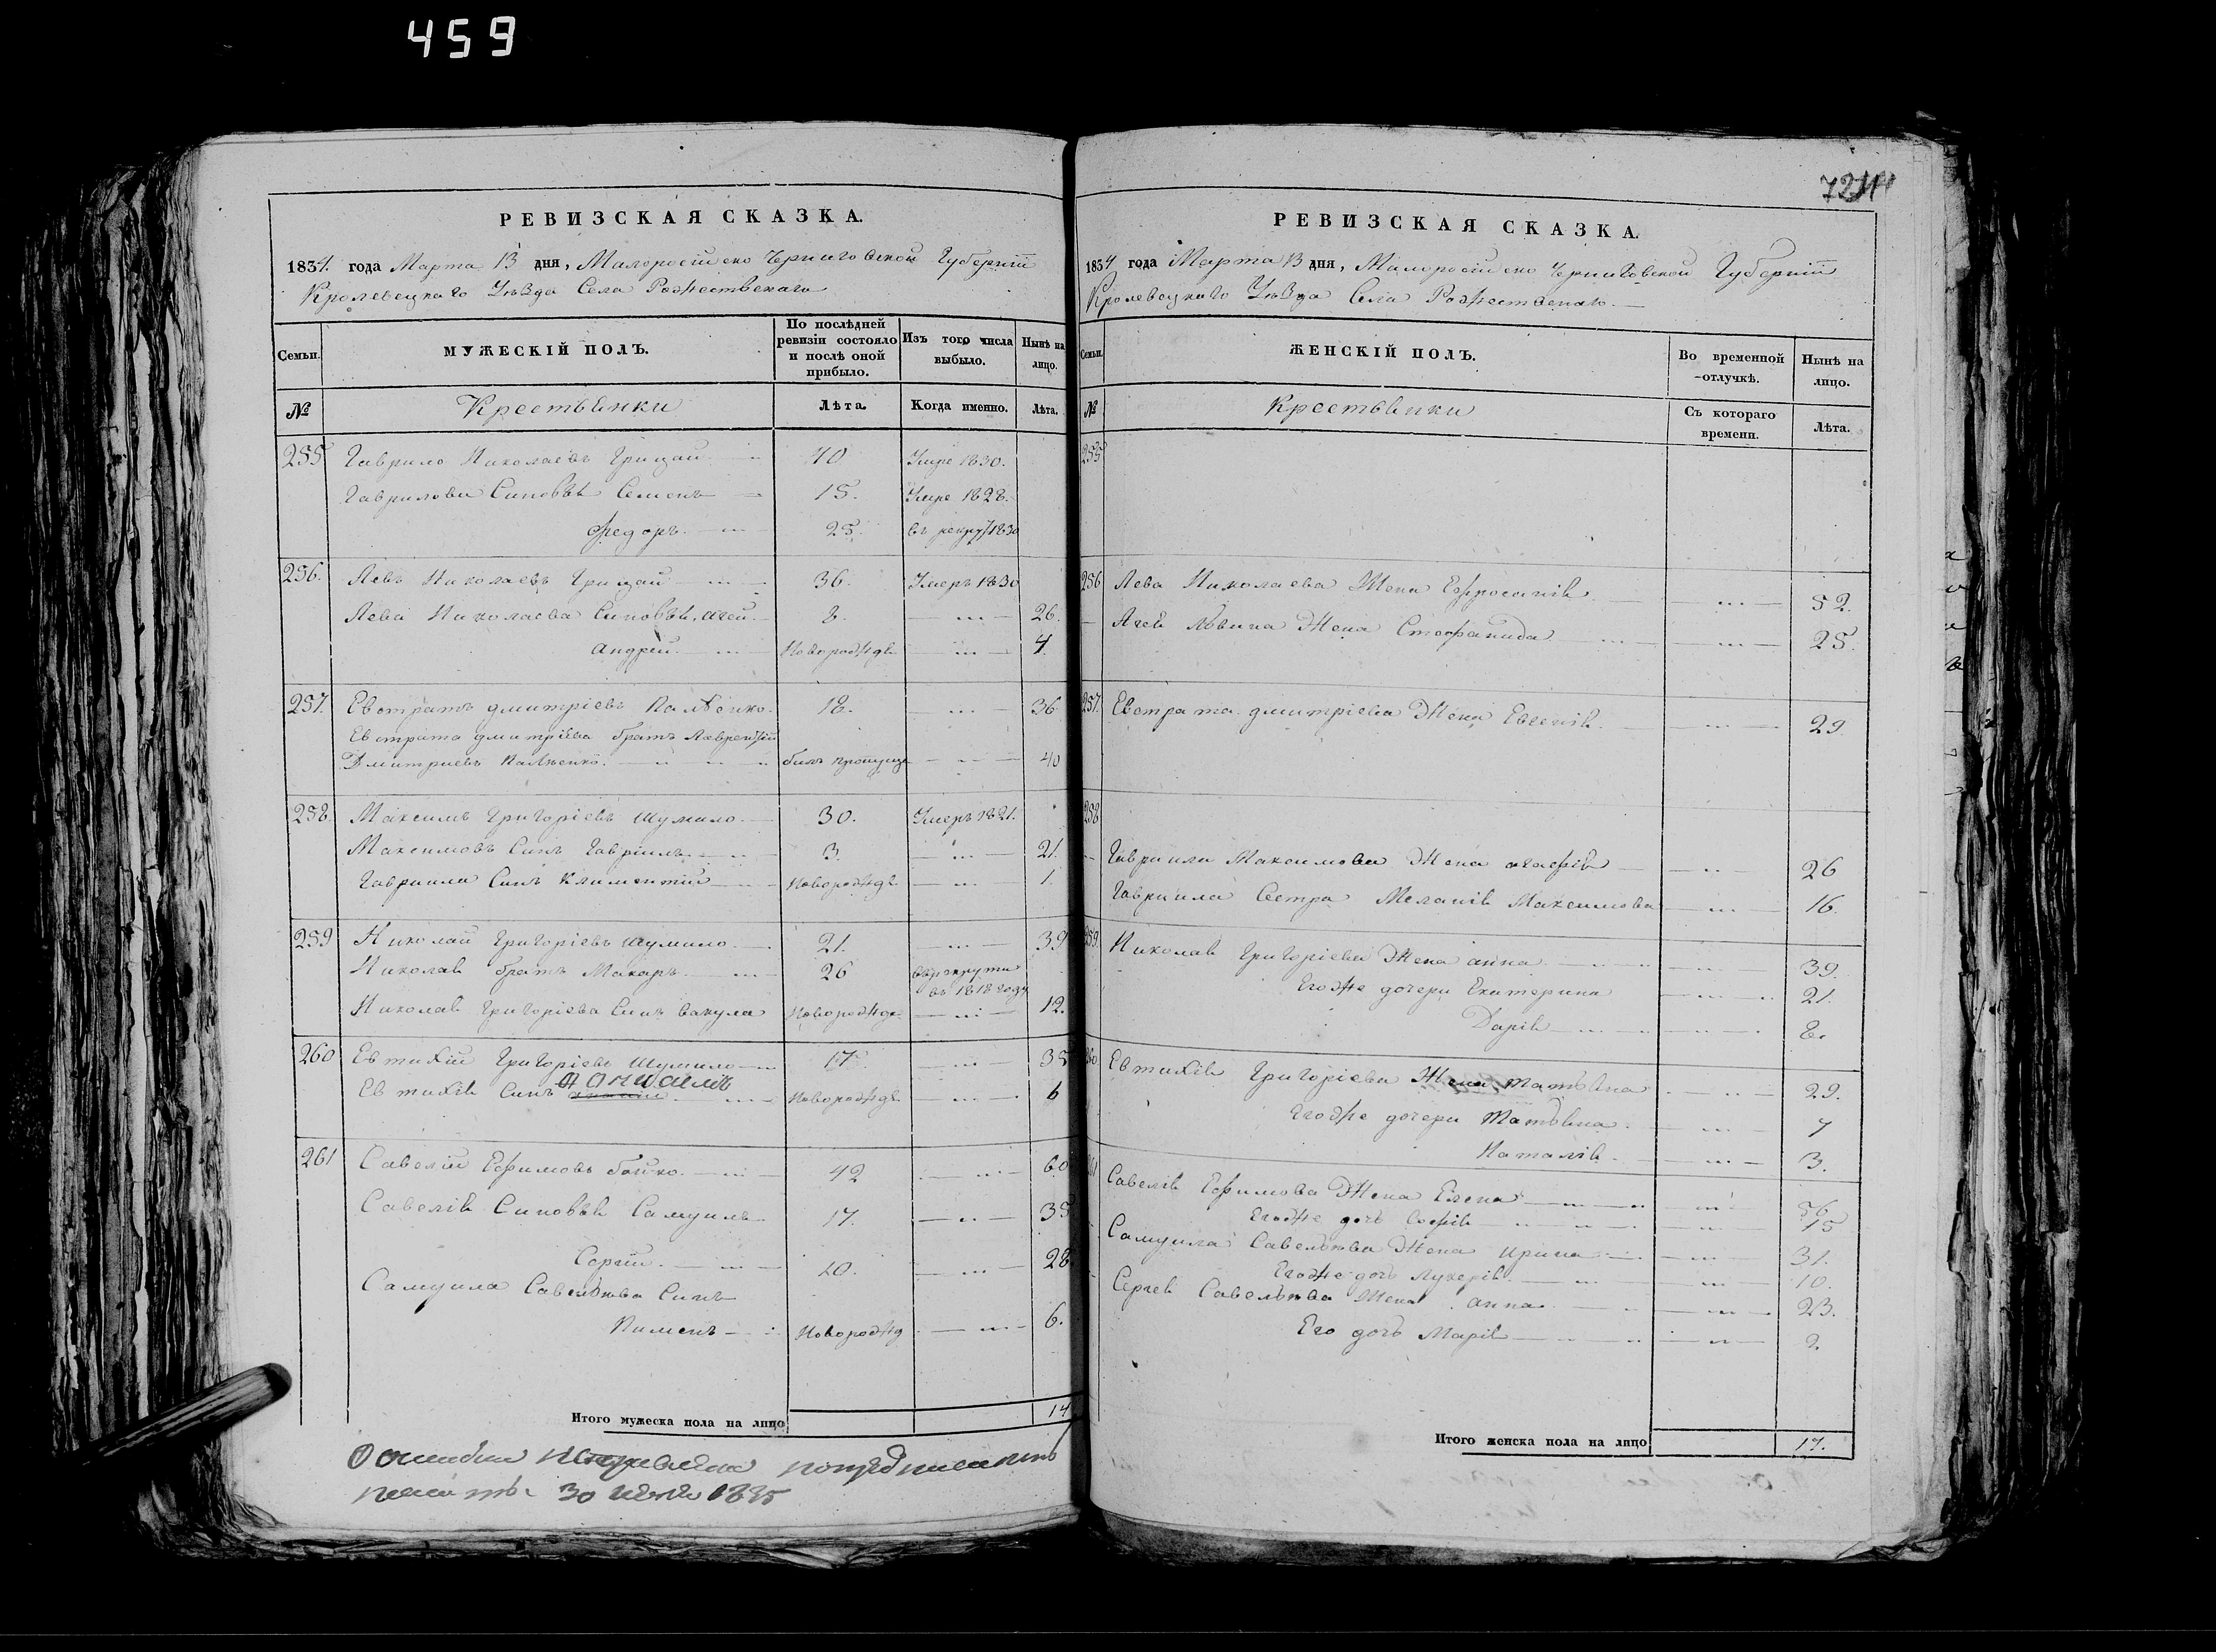 459
РЕВИЗСКАЯ СКАЗКА.
1834. года Марта 13 дня, Малоросійско Черниговской Губерніи
Кролевецкаго Уѣзда Села Рожественскаго
Семьи. МУЖЕСКІЙ ПОЛЪ. По послѣдней ревизіи состояло и послѣ оной прибыло. Изъ того числа выбыло. Нынѣ на лицо.
№ Крестьянки Лѣта. Когда именно. Лѣта.
255 Гаврило Николаевъ Грицай 40 Умре 1830.
Гаврилови Синовья Семенъ 15. Умре 1828.
Федоръ 25. въ рекру 1830
256. Левъ Николаевъ Грицай 36. Умеръ 1830
Лева Николаева Синовья, 8. 26.
Андрей Новорожде 4
257. Евстратъ Дмитріевъ 18. 36
Евстрата Дмитріева братъ Лаврентій
Дмитриевъ билъ пропущ 40
258. Максимъ Григоріевъ Шумило 30. Умеръ 1821.
Максимовъ Синъ Гавріилъ 3. 21.
Гавриила Синъ Климентій Новорожде 1.
259 Николай Григоріевъ Шумило 21. 39
Николая братъ Макаръ 26 в рекрути
въ 1818 году
Николая Григоріева Синъ Вакула Новорожде 12.
260 Евтихій Григоріевъ Шумило 17 35
Евтихія Синъ Новорожде 6
261 Савелій Ефимовъ Бойко 42 60
Савелія Синовья Самуилъ 17. 35
Сергій 10. 28
Самуила Савельева Синъ
Пименъ Новорожд 6.
Итого мужеска пола на лицо 14
30 1835
72
РЕВИЗСКАЯ СКАЗКА.
1834 года Марта 13 дня, Малоросійско Черниговской Губерніи
Кролевецкаго Уѣзда Села Рожественскаго
Семьи. ЖЕНСКІЙ ПОЛЪ. Во временной отлучкѣ. Нынѣ на лицо.
№ Крестьянки Съ котораго времени. Лѣта.
255
256 Лева Николаева Жена Ефросинія 52.
Львина Жена Стефанида 25.
257. Евстрата Дмитріева Жена Евгенія 29.
258
Гавриила Максимова Жена Агафія 26
Гавриила Сестра Меланія Максимова 16.
259. Николая Григоріева Жена Анна 39.
Егоже дочери Екатерина 21.
Дарія 8.
260 Евтихія Григоріева Жена Татьяна 29.
Егоже дочери Татьяна 7
Наталія 3.
261 Савелія Ефимова Жена Елена 56
Егоже дочь Софія 15
Самуила Савельева Жена Ирина 31.
Егоже дочь Лукерія 10.
Сергея Савельева Жена Анна 23.
Его дочь Марія 2.
Итого женска пола на лицо 17.